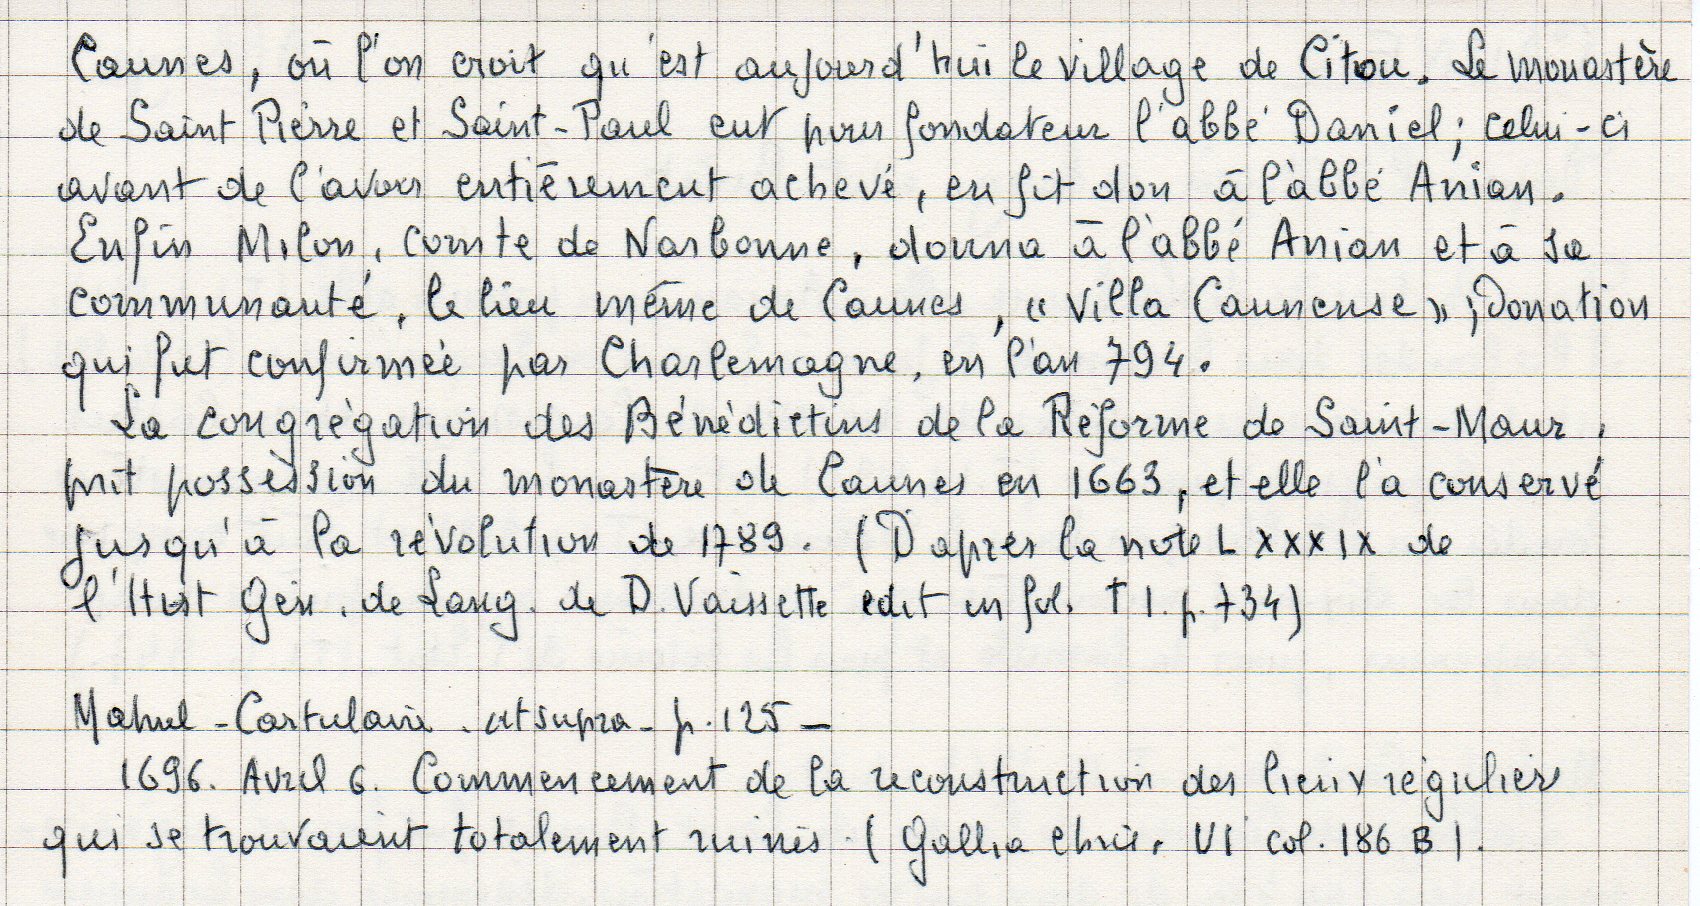 Caunes, où l'on croit qu'est aujourd'hui le village de Citou. Le monastère
de Saint Pierre et Saint-Paul eut pour fondateur l'abbé Daniel; celui-ci
avant de l'avoir entièrement achevé, en fit don à l'abbé Anian.
Enfin Milon, comte de Narbonne, donna à l'abbé Anian et à sa
communauté, le lieu même de Caunes, « Villa Caunense »; Donation
qui fut confirmée par Charlemagne, en l'an 794.
La congrégation des Bénédictins de la Réforme de Saint-Maur,
prit possession du monastère de Caunes en 1663, et elle l'a conservé
jusqu'à la révolution de 1789. (D'après la note L XXXIX de
l'Hist Gén. de Lang. de D. Vaissette edit in fol. T I. p. 734)
Mahul - Cartulaire. ut supra - p. 125 -
1696. Avril 6. Commencement de la reconstruction des lieux réguliers
qui se trouvaient totalement ruinés. (Gallia Chris. VI col. 186 B).